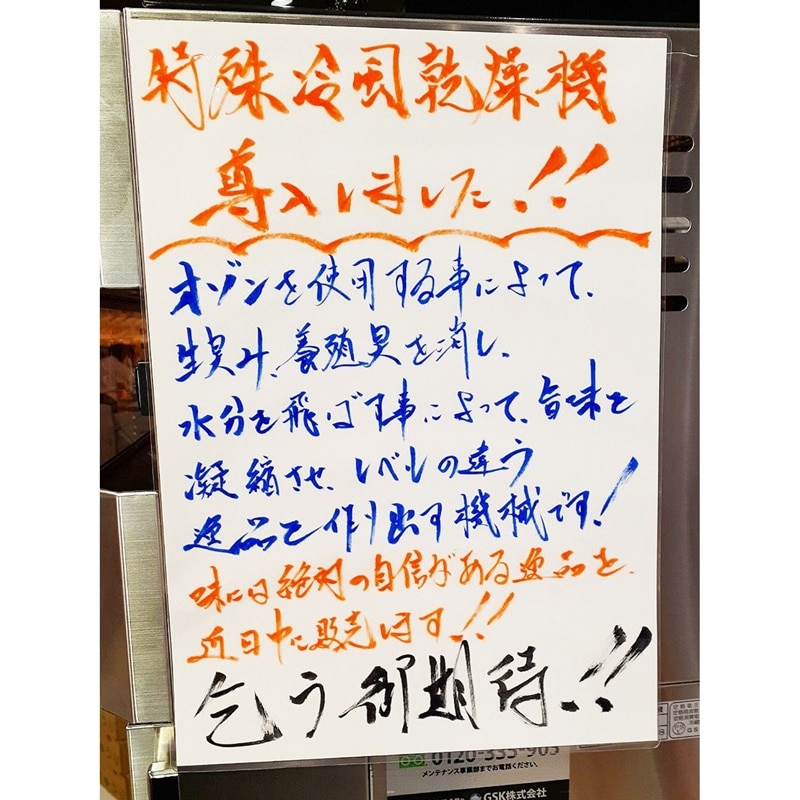 特殊冷風乾燥機
導入しました!!
オゾンを使用する事によって、
生臭み、養殖臭を消し、
水分を飛ばす事によって、旨味を
凝縮させ、レベルの違う
逸品を作り出す機械です!
味には絶対の自信がある逸品を、
近日中に販売します!!
乞う御期待!!
0120-335-905
メンテナンス事業部までお電話ください。
GSK株式会社